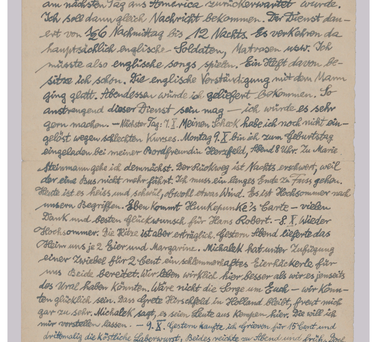 am nächsten Tag aus Amerika zurückerwartet wurde.
Ich soll dann gleich Nachricht bekommen. Der Dienst dau-
ert von 6 Nachmittag bis 12 Nachts. Es verkehren da
hauptsächlich englische Soldaten, Matrosen usw. Ich
müsste also englische songs spielen. Ein Heft davon be-
sitze ich schon. Die englische Verständigung mit dem Mann
ging glatt. Abendessen würde ich geliefert bekommen. So
anstrengend dieser Dienst sein mag – ich würde es sehr
gern machen – Nächster Tag: 7.X. Meinen habe ich noch nicht ein-
gelöst wegen schlechten Kurses. Montag 9.X bin ich zum Geburtstag
eingeladen bei meiner Bordfreundin Herzfeld, Abend 8 Uhr. Zu Marie
Steinmann gehe ich demnächst. Der Rückweg ist Nachts erschwert, weil
der eine Bus nicht mehr fährt. Ich muss ein langes Ende zu Fuss gehen.
Heute ist es heiss und schwül, obwohl etwas Wind. Es ist Hochsommer nach
unseren Begriffen. Eben kommt Karte – vielen
Dank und besten Glückwunsch für Hans Robert. – 8.X. Wieder
Hochsommer. Die Hitze ist aber erträglich. Gestern Abend lieferte das
Heim uns je 2 Eier und Margarine. Michalek hat unter Zufügung
einer Zwiebel für 2 Cent ein schlemmerhaftes Eierhäckerle für
uns Beide bereitet. Wir leben wirklich hier besser als wir es jenseits
des Ural haben könnten. Wäre nicht die Sorge um Euch – wir könn-
ten glücklich sein. Dass Grete Hirschfeld in Holland bleibt, freut mich
gar zu sehr. Michalek sagt, es seien Leute aus Kempen hier. Die will ich
mir vorstellen lassen. – 9.X. Gestern kaufte ich Grieven für 15 Cent und
drittemalig die köstliche Leberwurst. Beides reichte zu Abend und früh.